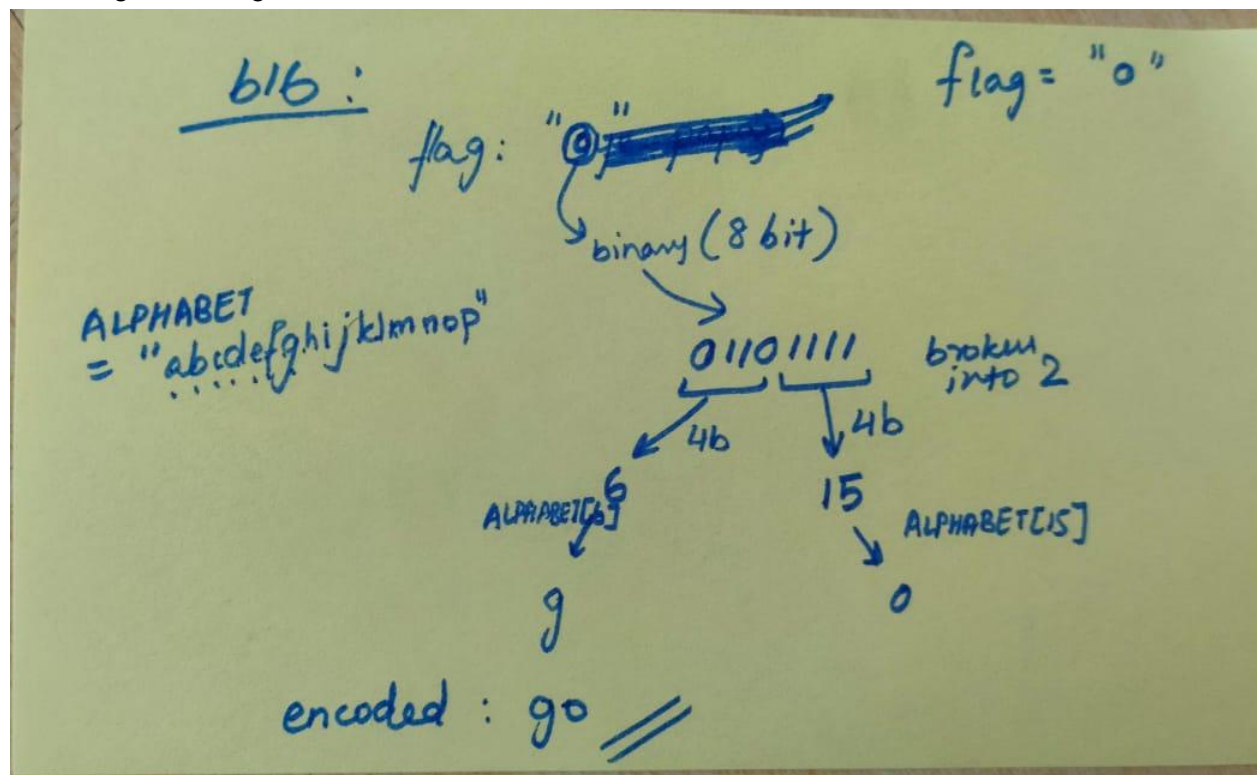 b16:
flag = "o"
flag: "o"
binary (8 bit)
ALPHABET
= "abcdefghijklmnop"
01101111
broken
into 2
4b
4b
6
15
ALPHABET[6]
ALPHABET[15]
g
o
encoded : go